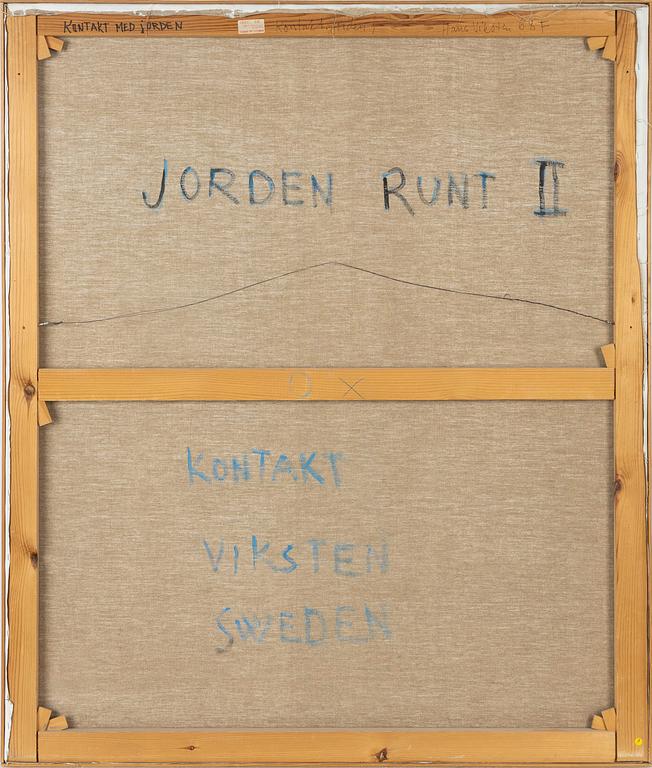 KONTAKT MED JORDEN
Hans Viksten 88 F
JORDEN RUNT II
X
KONTAKT
VIKSTEN
SWEDEN